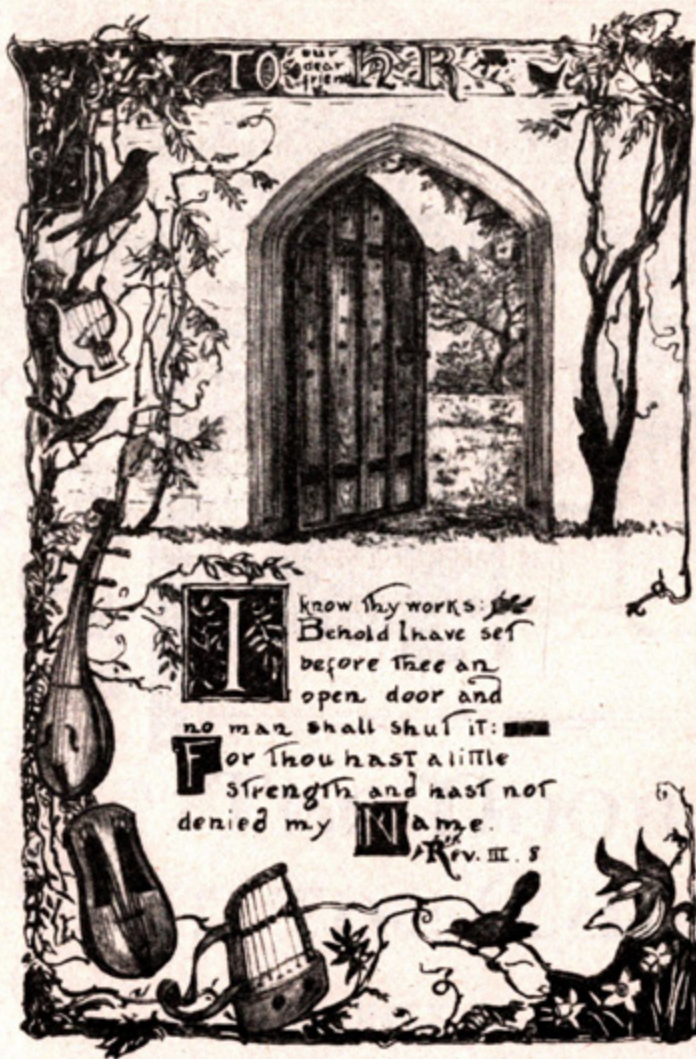 TO our dear friend H R
I know thy works:
Behold I have set
before thee an
open door and
no man shall shut it:
For thou hast a little
strength and hast not
denied my Name.
Rev. III. 8